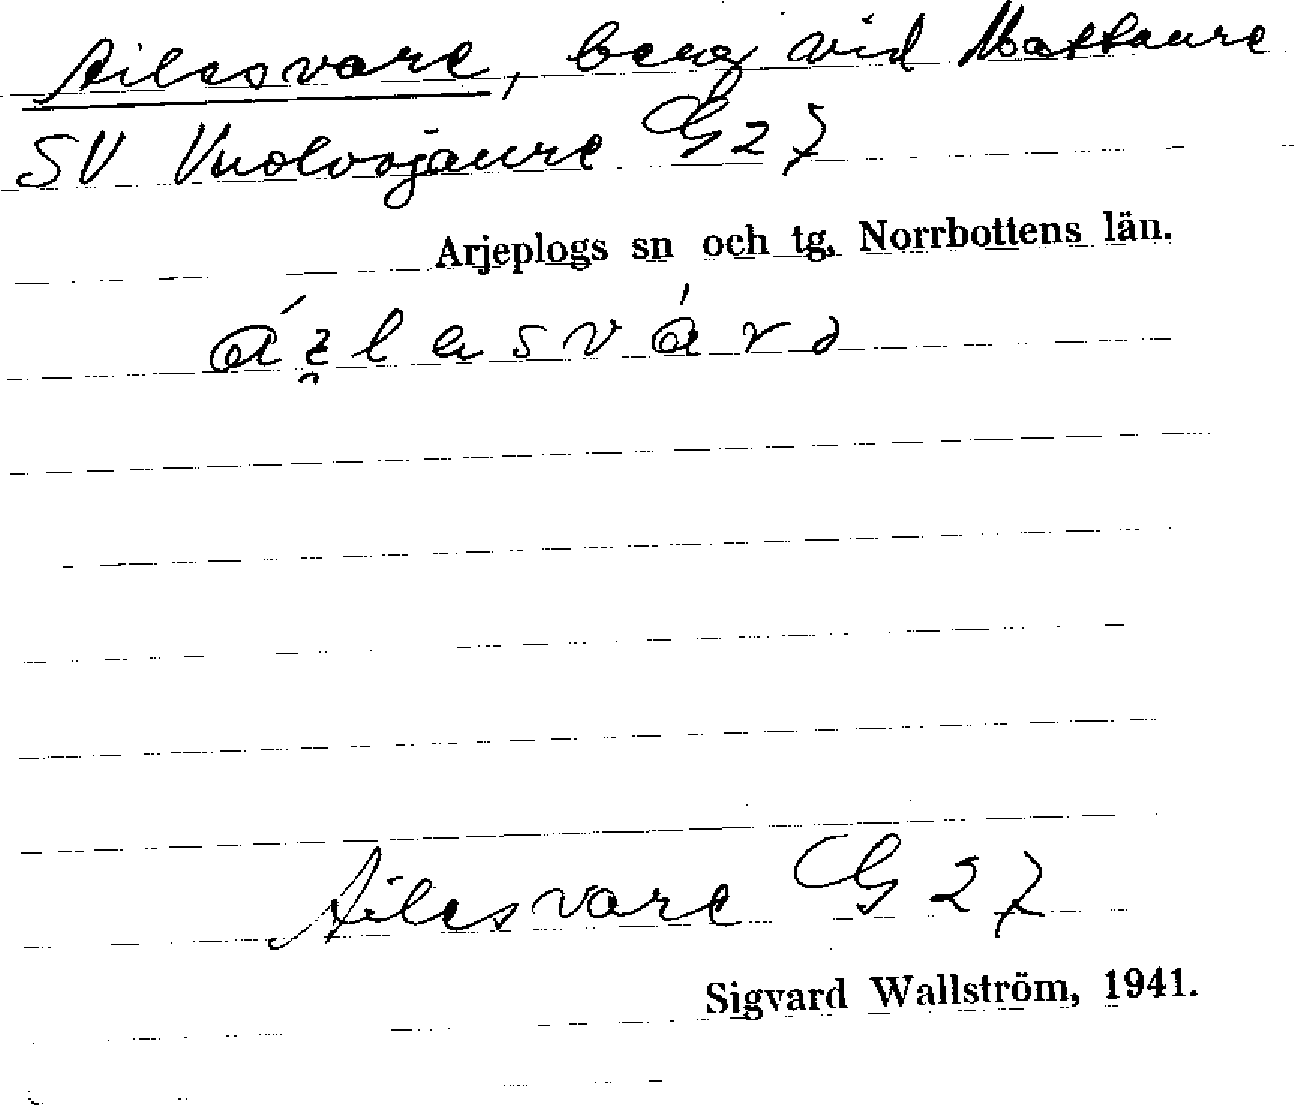 Ailesvare, berg vid Mattaure
SV Vuolvojaure G 27
Arjeplogs sn och tg, Norrbottens län.
Ailesvare G 27
Sigvard Wallström, 1941.